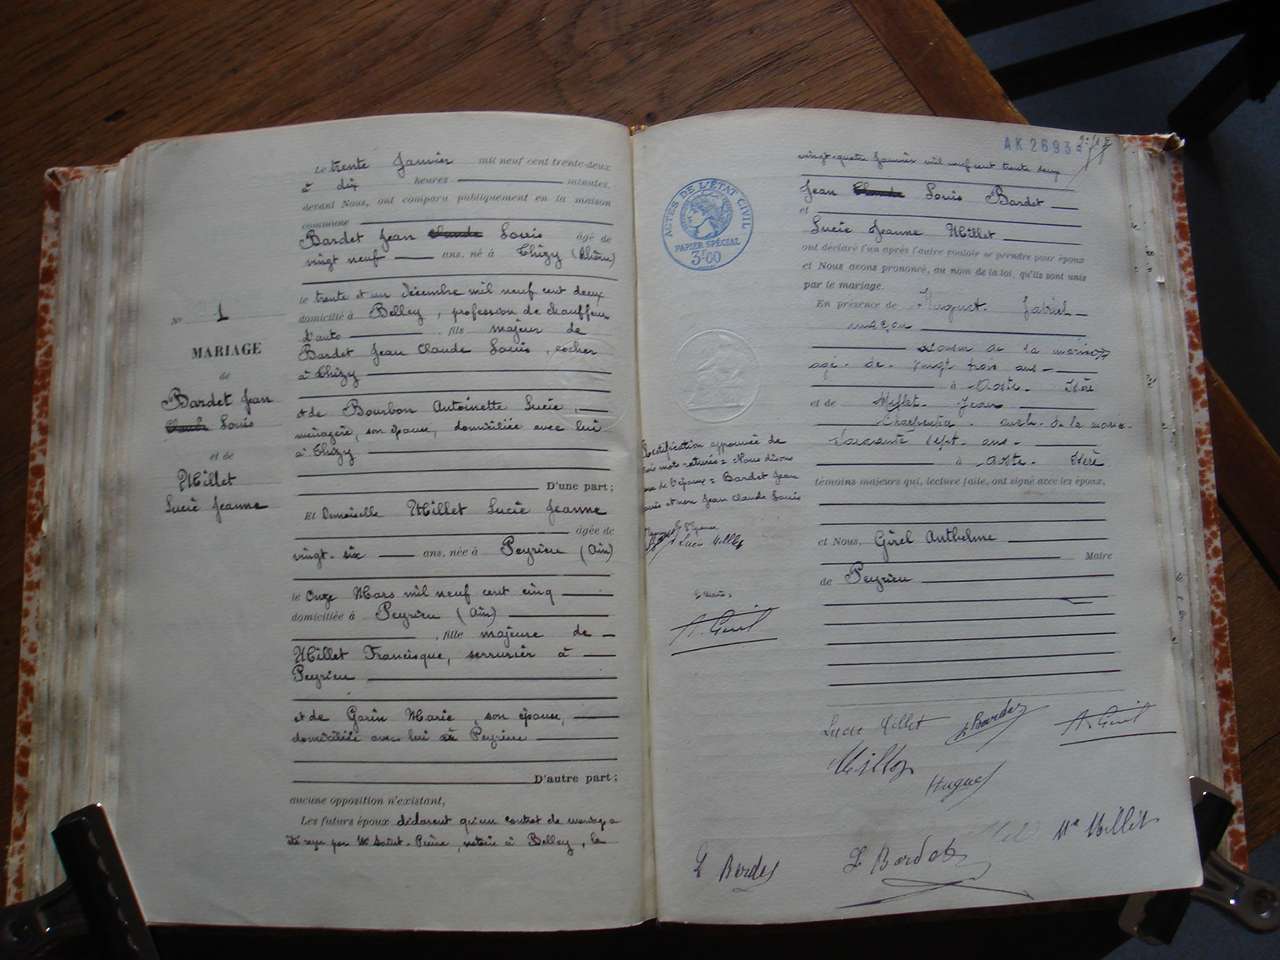 Le trente Janvier mil neuf cent trente-deux
à dix heures minutes,
devant Nous, ont comparu publiquement en la maison
commune
Bardet Jean Claude Louis âgé de
vingt neuf ans, né à Thizy (Rhône)
le trente et un décembre mil neuf cent deux
domicilié à Belley, profession de chauffeur
d'auto, fils majeur de
Bardet Jean Claude Louis, cocher
à Thizy
et de Bourbon Antoinette Lucie,
ménagère, son épouse, domiciliée avec lui
à Thizy
D'une part;
Et Demoiselle Millet Lucie Jeanne
âgée de
vingt-six ans, née à Peyrieu (Ain)
le onze Mars mil neuf cent cinq
domiciliée à Peyrieu (Ain)
, fille majeure de
Millet Francisque, serrurier à
Peyrieu
et de Garin Marie, son épouse,
domiciliée avec lui à Peyrieu
D'autre part;
aucune opposition n'existant,
Les futurs époux déclarent qu'un contrat de mariage a
été reçu par Me Saint-Pierre, notaire à Belley, le
No 1
MARIAGE
de
Bardet Jean
Claude Louis
et de
Millet
Lucie Jeanne
AK 2693
vingt-quatre Janvier mil neuf cent trente deux
Jean Claude Louis Bardet
et
Lucie Jeanne Millet
ont déclaré l'un après l'autre vouloir se prendre pour époux
et Nous avons prononcé, au nom de la loi, qu'ils sont unis
par le mariage.
En présence de Huguet
maçon
de la mariée
âgé de vingt trois ans
à Aoste Isère
et de Millet Jean
oncle de la mariée
Soixante sept ans
à Aoste Isère
témoins majeurs qui, lecture faite, ont signé avec les époux,
et Nous, Girel Anthelme
Maire
de Peyrieu
ACTES DE L'ÉTAT CIVIL
PAPIER SPÉCIAL
3F00
Rectification approuvée de
mots raturés = Nous disons
de l'épouse = Bardet Jean
Louis et non Jean Claude Louis
L'épouse
Lucie Millet
Le Maire,
A. Girel
Lucie Millet L Bardet A. Girel
Millet
Huguet
L Bardet L Bardet Me Millet